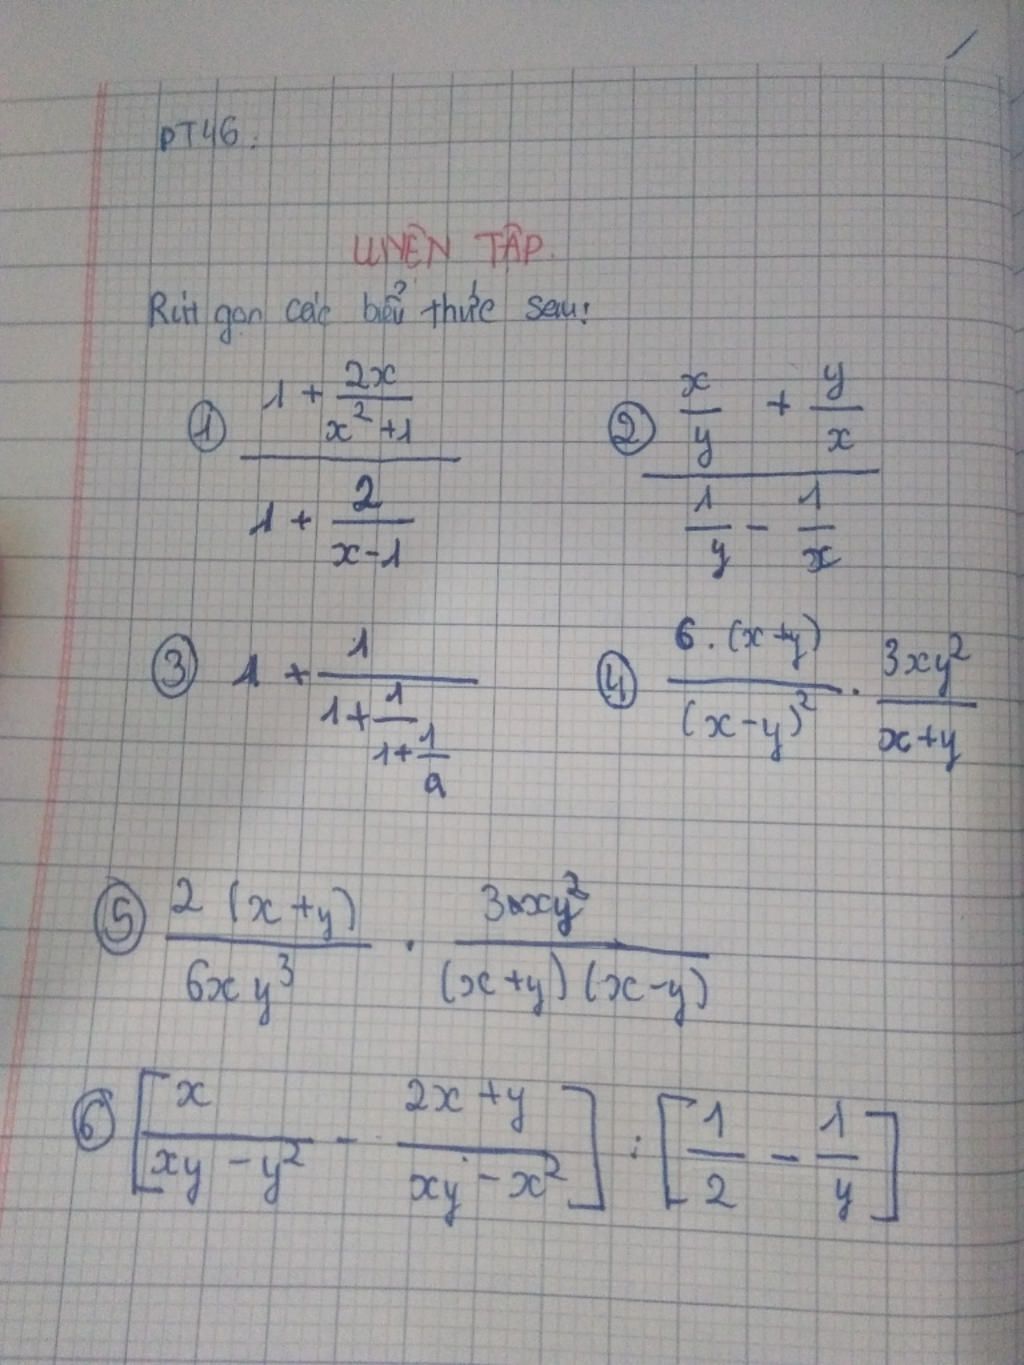 PT46:
LUYỆN TẬP.
Rút gọn các biểu thức sau:
① (1 + 2x/(x² + 1)) / (1 + 2/(x - 1)) ② (x/y + y/x) / (1/y - 1/x)
③ 1 + 1/(1 + 1/(1 + 1/a)) ④ 6.(x+y)/(x-y)² . 3xy²/(x+y)
⑤ 2(x+y)/6xy³ . 3xy²/(x+y)(x-y)
⑥ [x/(xy - y²) - (2x + y)/(xy - x²)] : [1/2 - 1/y]